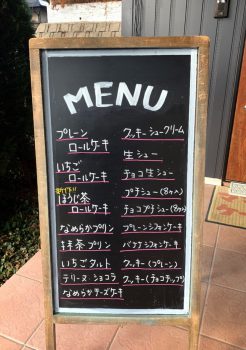 MENU
プレーン
ロールケーキ
いちご
ロールケーキ
ほうじ茶
ロールケーキ
なめらかプリン
抹茶プリン
いちごタルト
テリーヌショコラ
なめらかチーズケーキ
クッキーシュークリーム
生シュー
チョコ生シュー
プチシュー(8ヶ入)
チョコプチシュー(8ヶ入)
プレーンシフォンケーキ
バナナシフォンケーキ
クッキー(プレーン)
クッキー(チョコチップ)